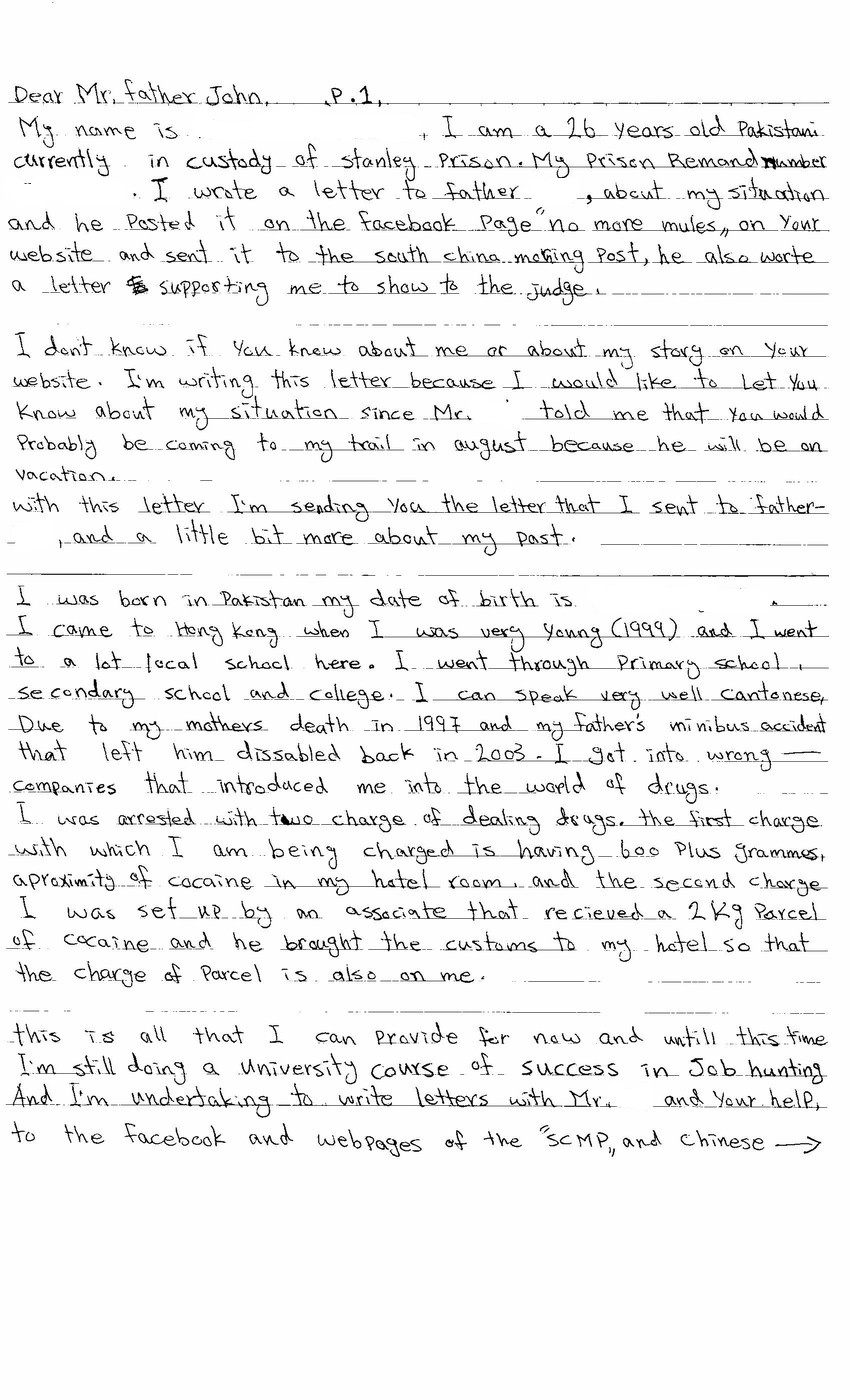 Dear Mr. father John, P.1,
My name is , I am a 26 years old Pakistani
currently in custody of stanley Prison. My Prison Remand number
. I wrote a letter to father , about my situation
and he Posted it on the facebook Page "no more mules,, on your
website and sent it to the south china morning Post, he also worte
a letter supporting me to show to the judge.
I don't know if you knew about me or about my story on your
website. I'm writing this letter because I would like to Let you
know about my situation since Mr. told me that you would
Probably be coming to my trail in august because he will be on
vacation.
with this letter I'm sending you the letter that I sent to father-
, and a little bit more about my past.
I was born in Pakistan my date of birth is .
I came to Hong Kong when I was very young (1999) and I went
to a lot local school here. I went through Primary school,
secondary school and college. I can speak very well cantonese,
Due to my mothers death in 1997 and my father's minibus accident
that left him dissabled back in 2003. I got into wrong —
companies that introduced me into the world of drugs.
I was arrested with two charge of dealing drugs. the first charge
with which I am being charged is having 600 Plus grammes,
aproximity of cocaine in my hotel room, and the second charge
I was set up by an associate that recieved a 2Kg Parcel
of cocaine and he brought the customs to my hotel so that
the charge of Parcel is also on me.
this is all that I can Provide for now and untill this time
I'm still doing a University course of success in Job hunting
And I'm undertaking to write letters with Mr. and your help,
to the facebook and webpages of the "SCMP,, and Chinese →